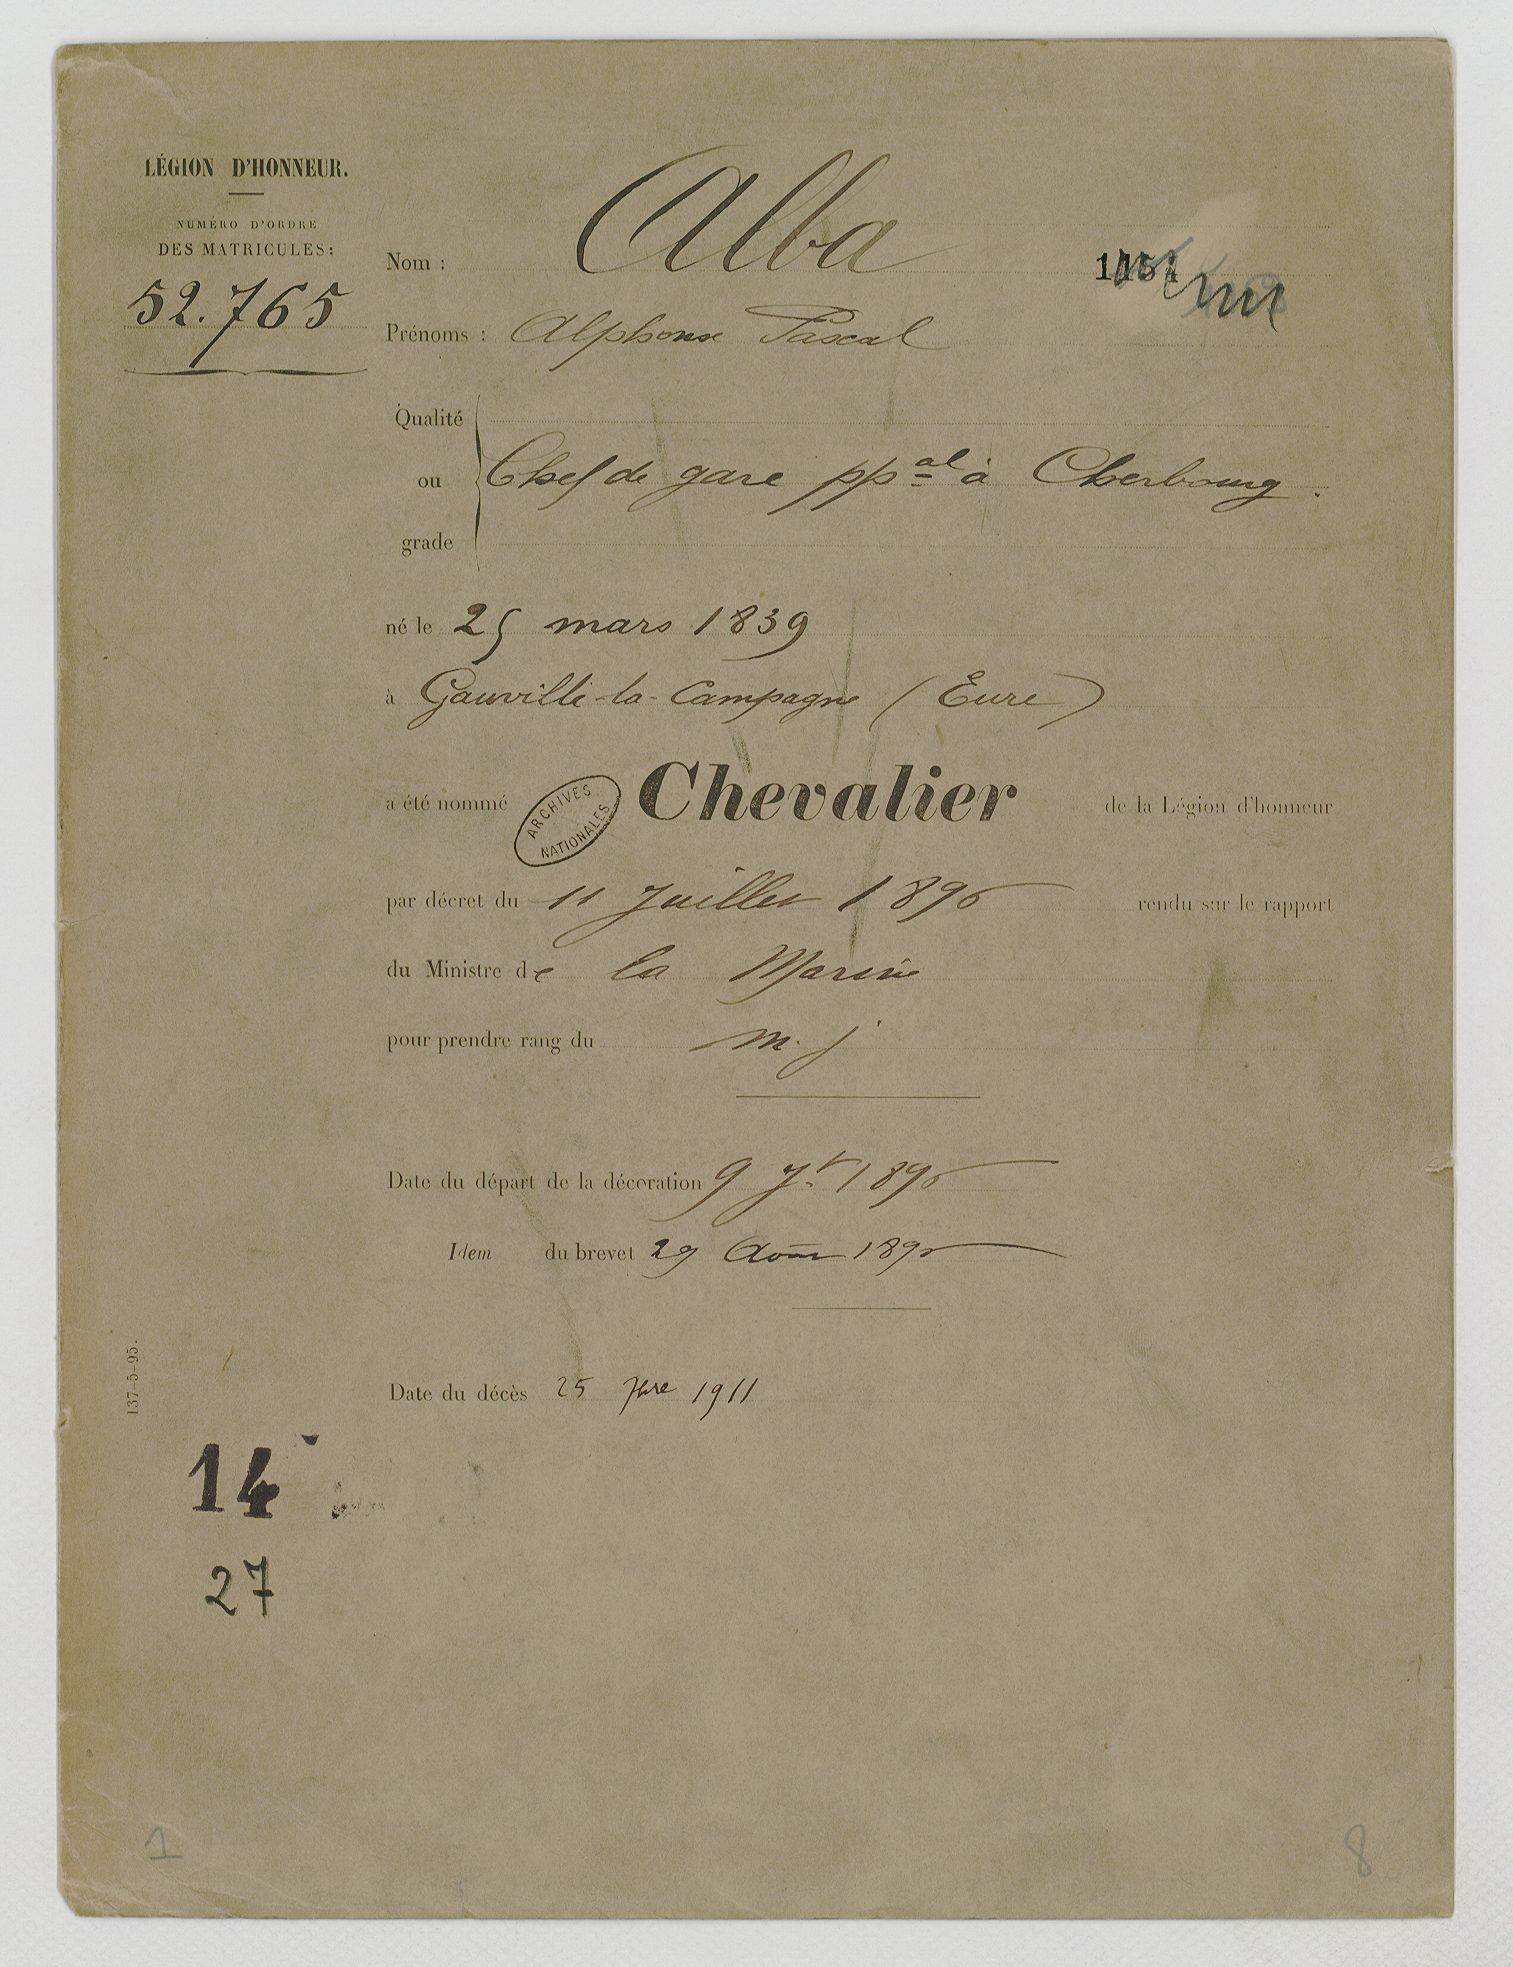 LÉGION D'HONNEUR.
NUMÉRO D'ORDRE
DES MATRICULES:
52.765
Nom : Alba
Prénoms : Alphonse Pascal
Qualité
ou
grade
Chef de gare ppal à Cherbourg.
né le 25 mars 1839
à Gauville-la-Campagne (Eure)
a été nommé Chevalier de la Légion d'honneur
ARCHIVES NATIONALES
par décret du 11 Juillet 1895 rendu sur le rapport
du Ministre de la Marine
pour prendre rang du m. j
Date du départ de la décoration 9 7r 1895
Idem du brevet 29 Août 1895
Date du décès 25 7bre 1911
137-5-95.
14
27
1
8